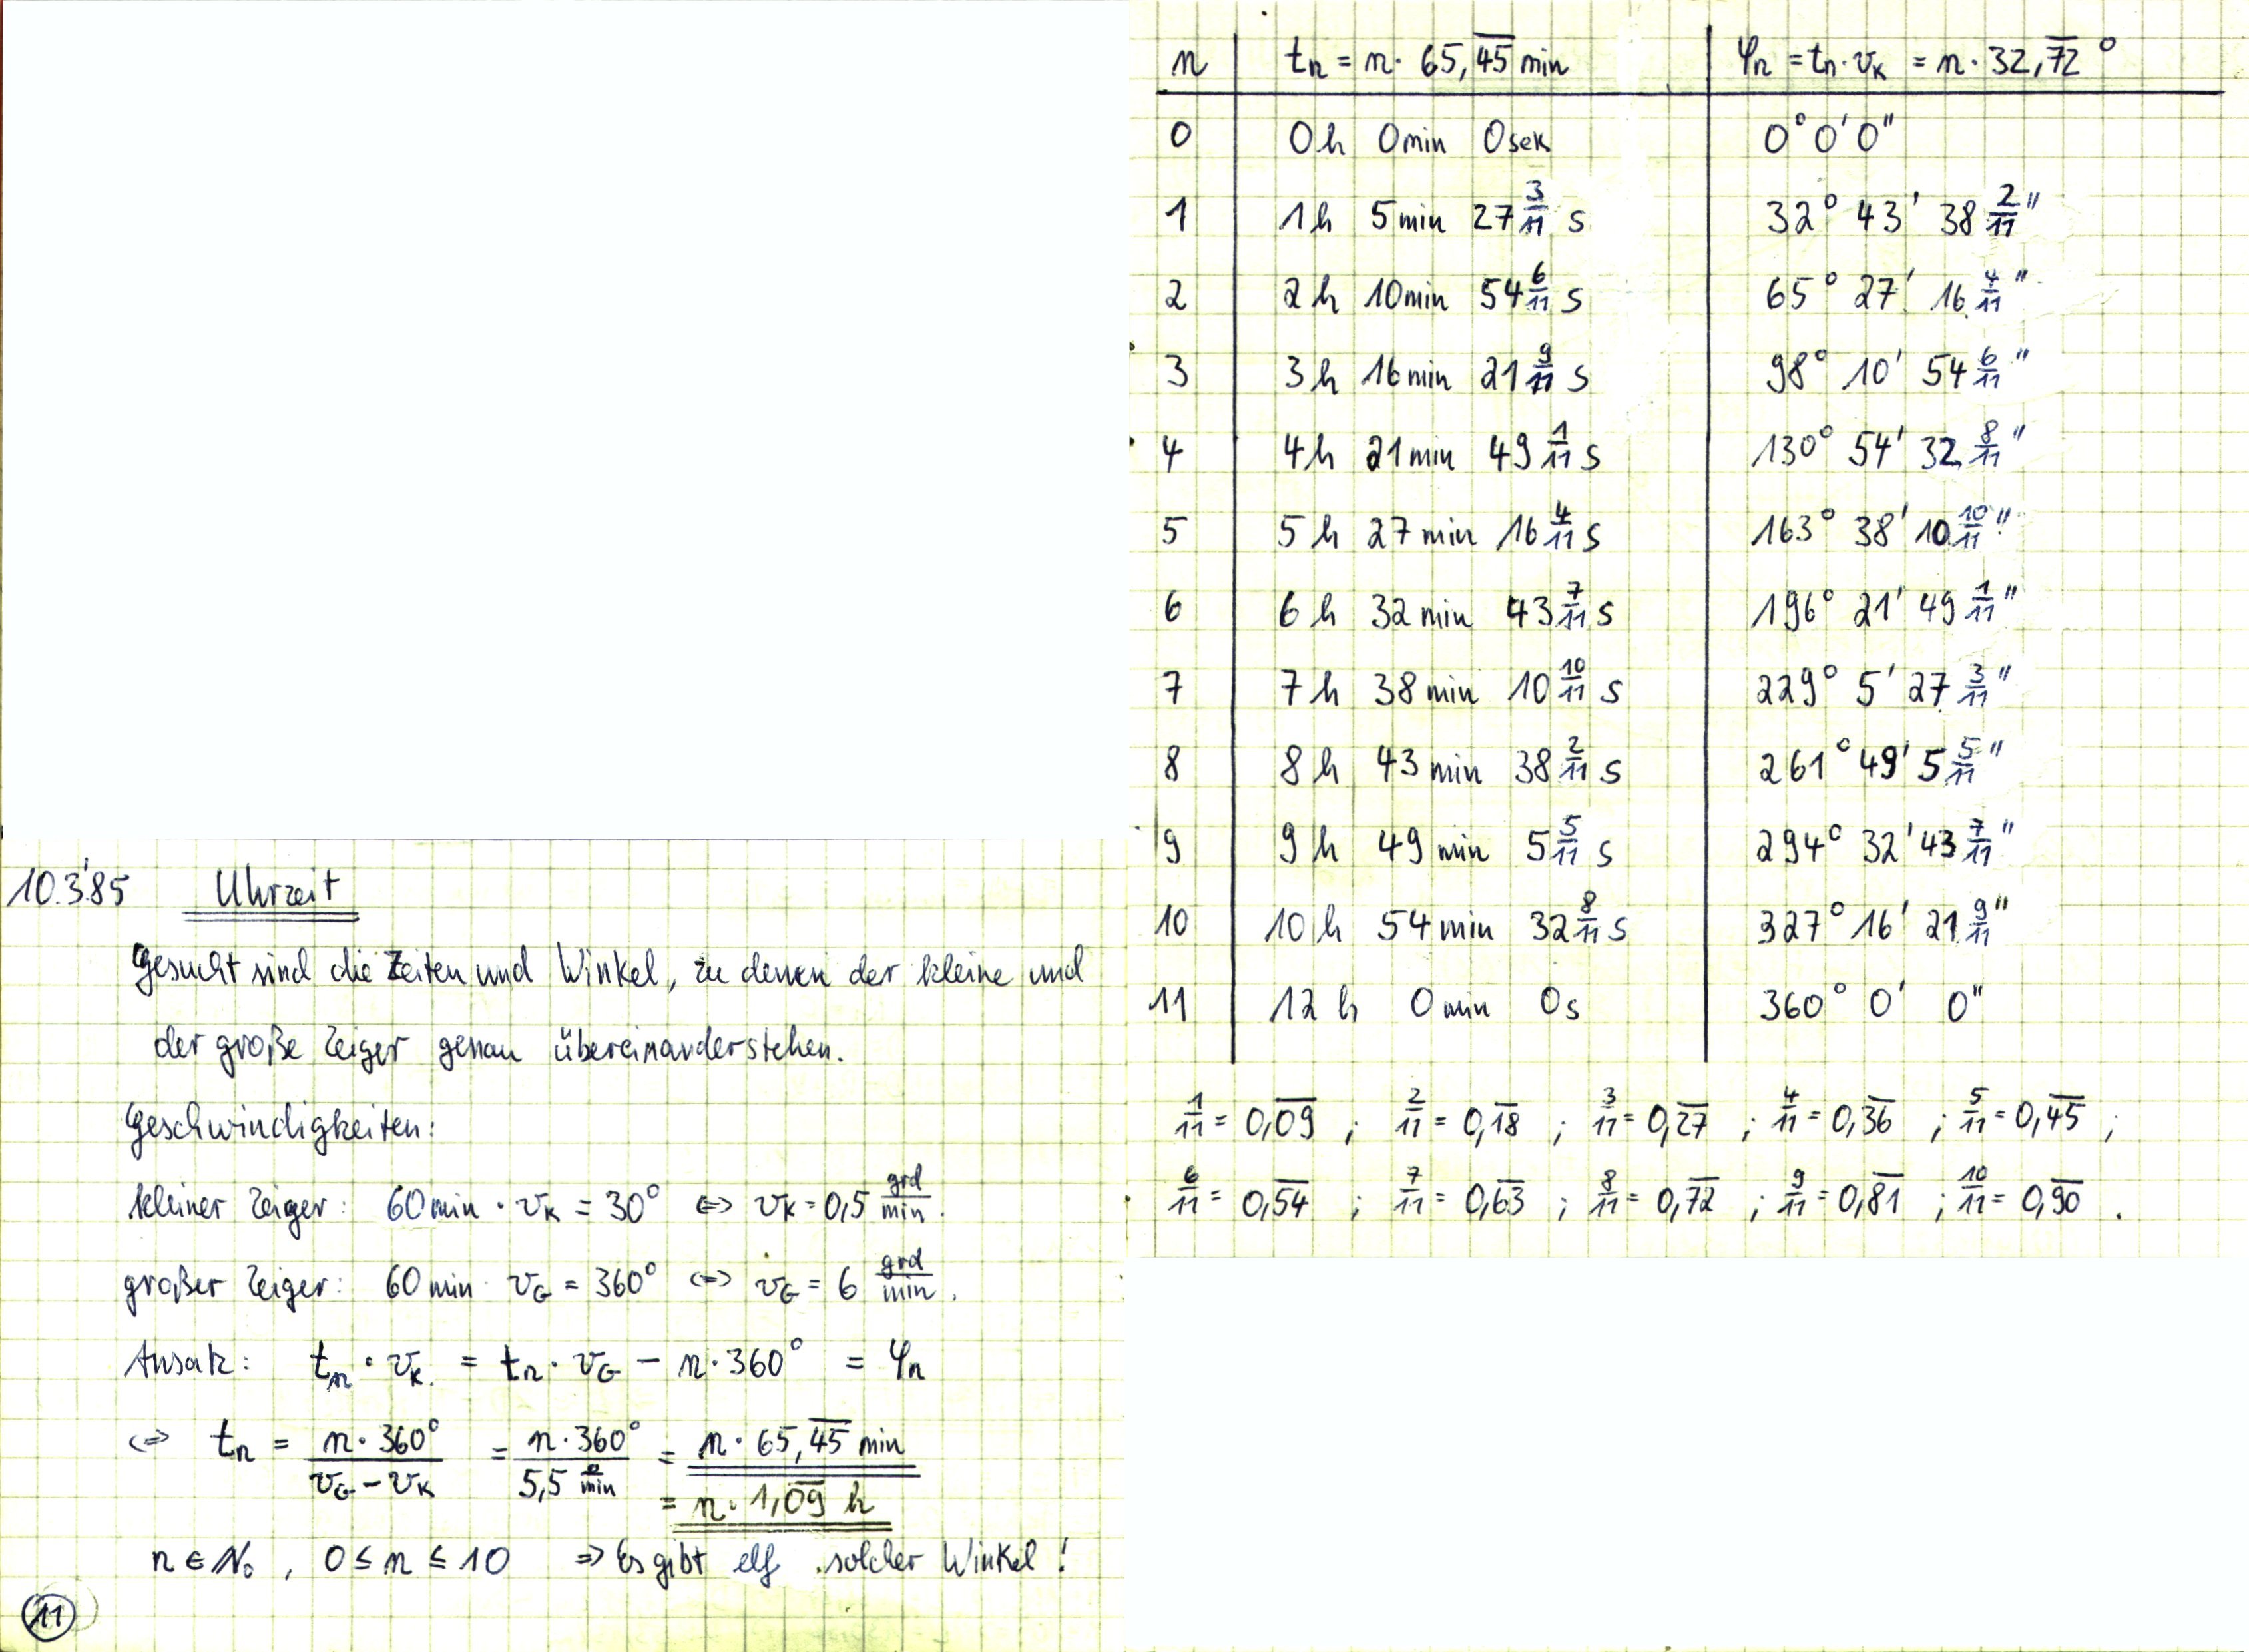 10.3.85 Uhrzeit
Gesucht sind die Zeiten und Winkel, zu denen der kleine und
der große Zeiger genau übereinanderstehen.
Geschwindigkeiten:
kleiner Zeiger: 60 min · v_K = 30° <=> v_K = 0,5 grd/min.
großer Zeiger: 60 min · v_G = 360° <=> v_G = 6 grd/min.
Ansatz: t_n · v_K = t_n · v_G − n · 360° = φ_n
<=> t_n = n · 360° / (v_G − v_K) = n · 360° / (5,5 °/min) = n · 65,4̅5̅ min
= n · 1,0̅9̅ h
n ∈ ℕ₀, 0 ≤ n ≤ 10 => Es gibt elf solcher Winkel!
11
n t_n = n · 65,4̅5̅ min φ_n = t_n · v_K = n · 32,7̅2̅ °
0 0 h 0 min 0 sek 0° 0' 0"
1 1 h 5 min 27 3/11 s 32° 43' 38 2/11"
2 2 h 10 min 54 6/11 s 65° 27' 16 4/11"
3 3 h 16 min 21 9/11 s 98° 10' 54 6/11"
4 4 h 21 min 49 1/11 s 130° 54' 32 8/11"
5 5 h 27 min 16 4/11 s 163° 38' 10 10/11"
6 6 h 32 min 43 7/11 s 196° 21' 49 1/11"
7 7 h 38 min 10 10/11 s 229° 5' 27 3/11"
8 8 h 43 min 38 2/11 s 261° 49' 5 5/11"
9 9 h 49 min 5 5/11 s 294° 32' 43 7/11"
10 10 h 54 min 32 8/11 s 327° 16' 21 9/11"
11 12 h 0 min 0 s 360° 0' 0"
1/11 = 0,0̅9̅ ; 2/11 = 0,1̅8̅ ; 3/11 = 0,2̅7̅ ; 4/11 = 0,3̅6̅ ; 5/11 = 0,4̅5̅ ;
6/11 = 0,5̅4̅ ; 7/11 = 0,6̅3̅ ; 8/11 = 0,7̅2̅ ; 9/11 = 0,8̅1̅ ; 10/11 = 0,9̅0̅ .